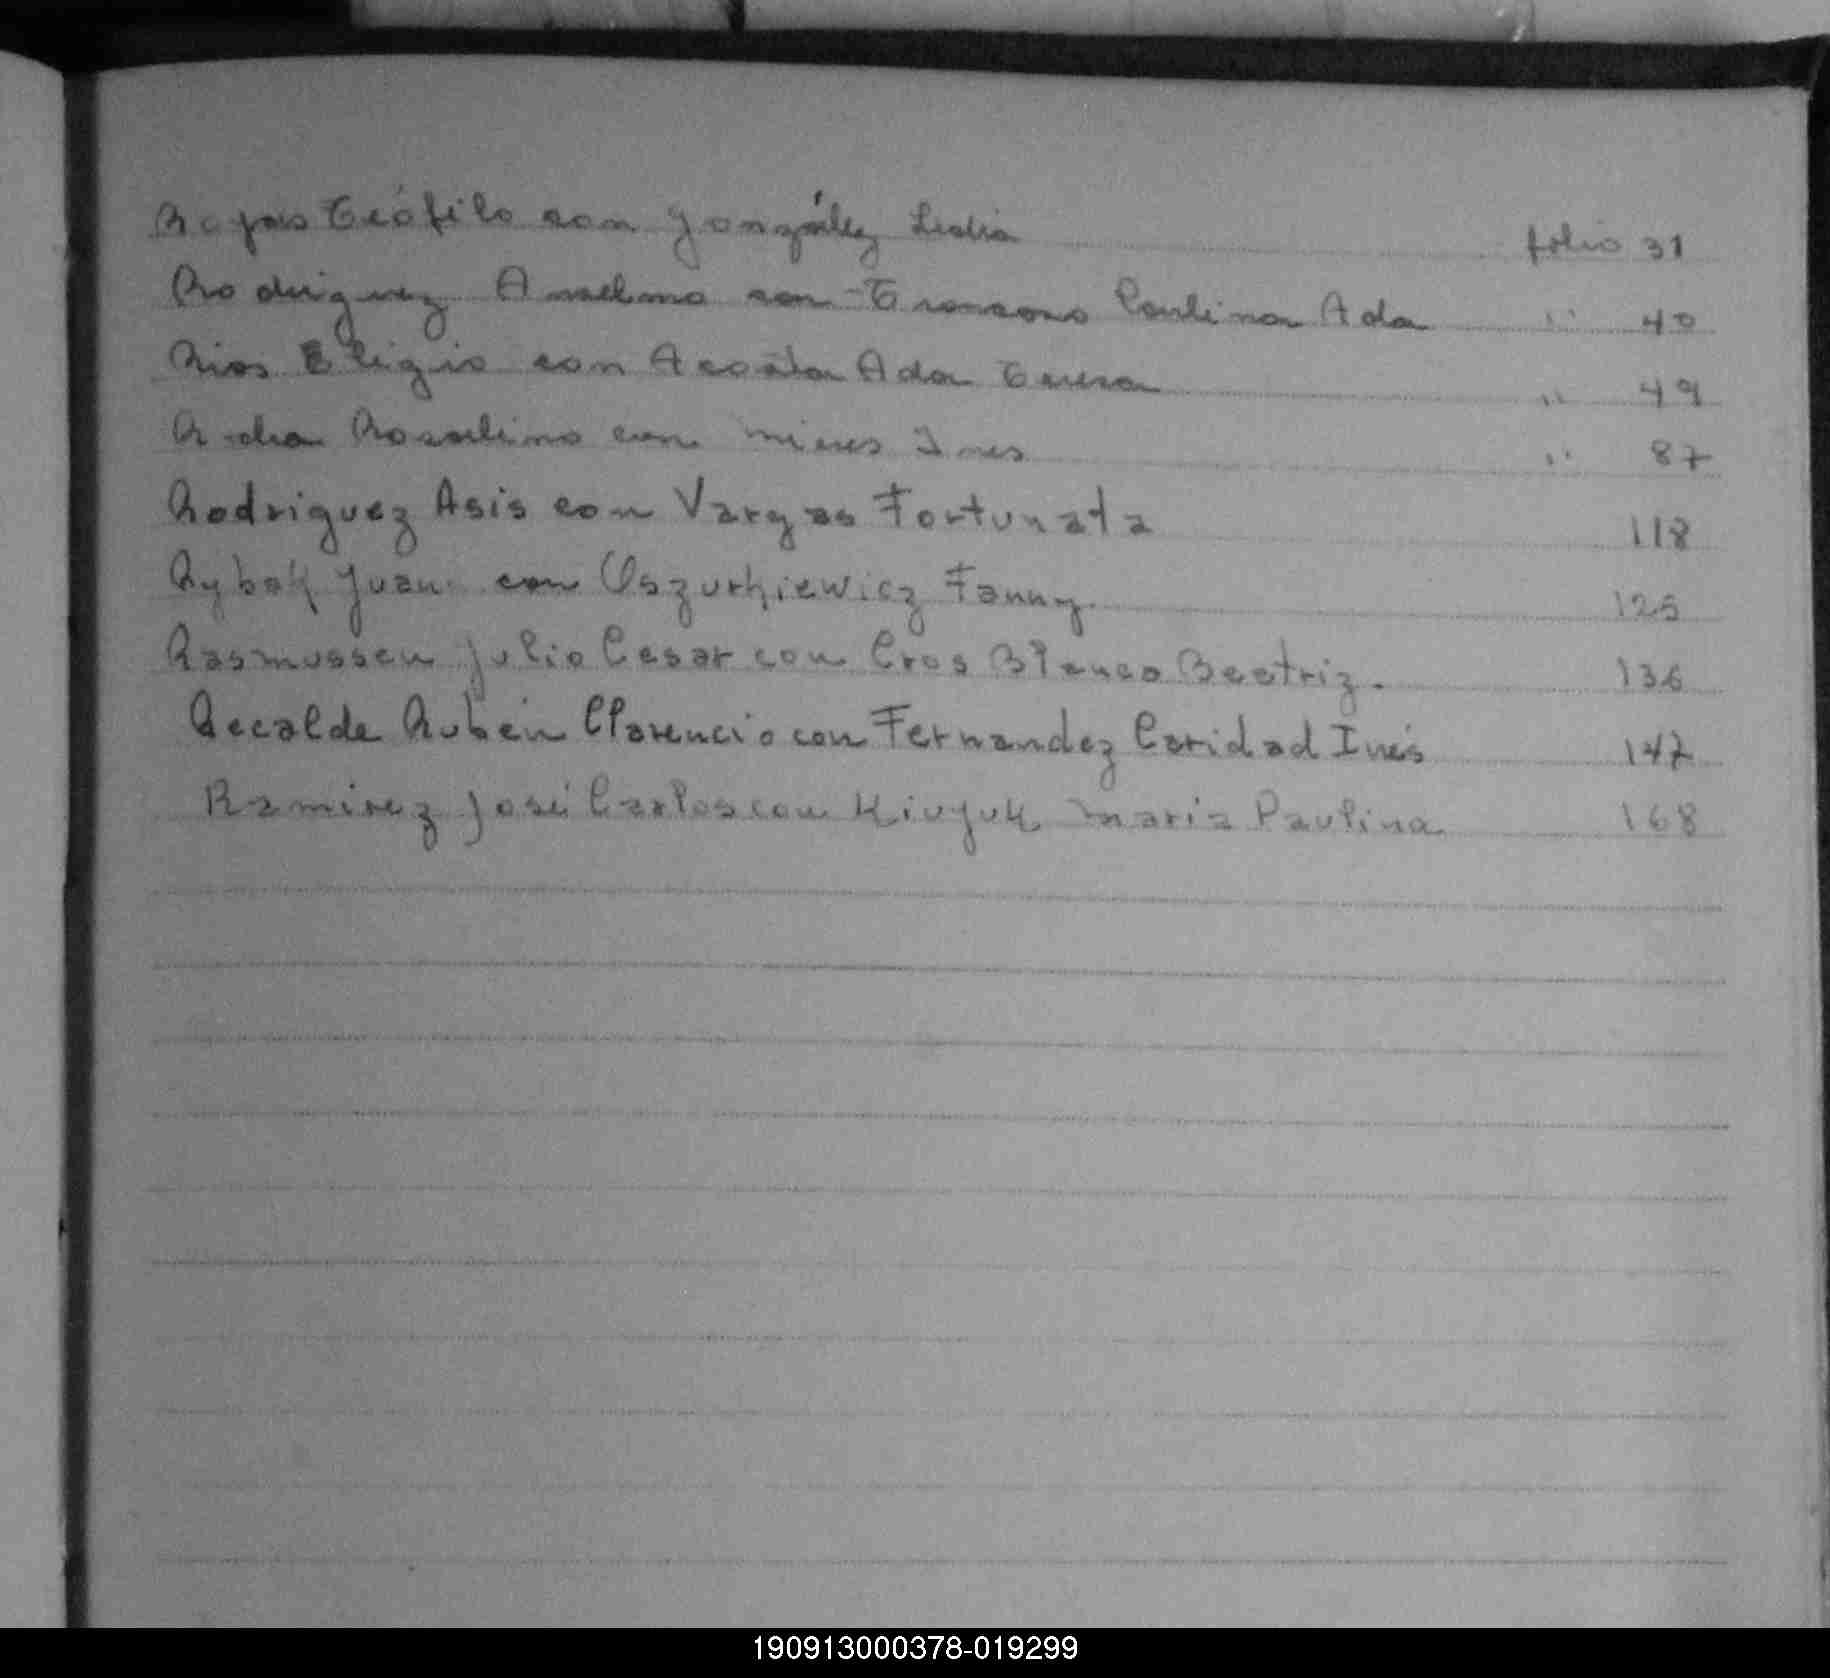 Rojas Teófilo con González Lidia folio 31
Rodriguez Anselmo con Troncoso Paulina Ada " 40
Rios Eligio con Acosta Ada Teresa " 49
Rosalino con Mieres Ines " 87
Rodriguez Asis con Vargas Fortunata 118
Rybak Juan con Oszurkiewicz Fanny. 125
Rasmussen Julio Cesar con Cros Blanco Beatriz. 136
Recalde Rubén Clarencio con Fernandez Caridad Inés 147
Ramirez José Carlos con Kivyuk Maria Paulina 168
190913000378-019299